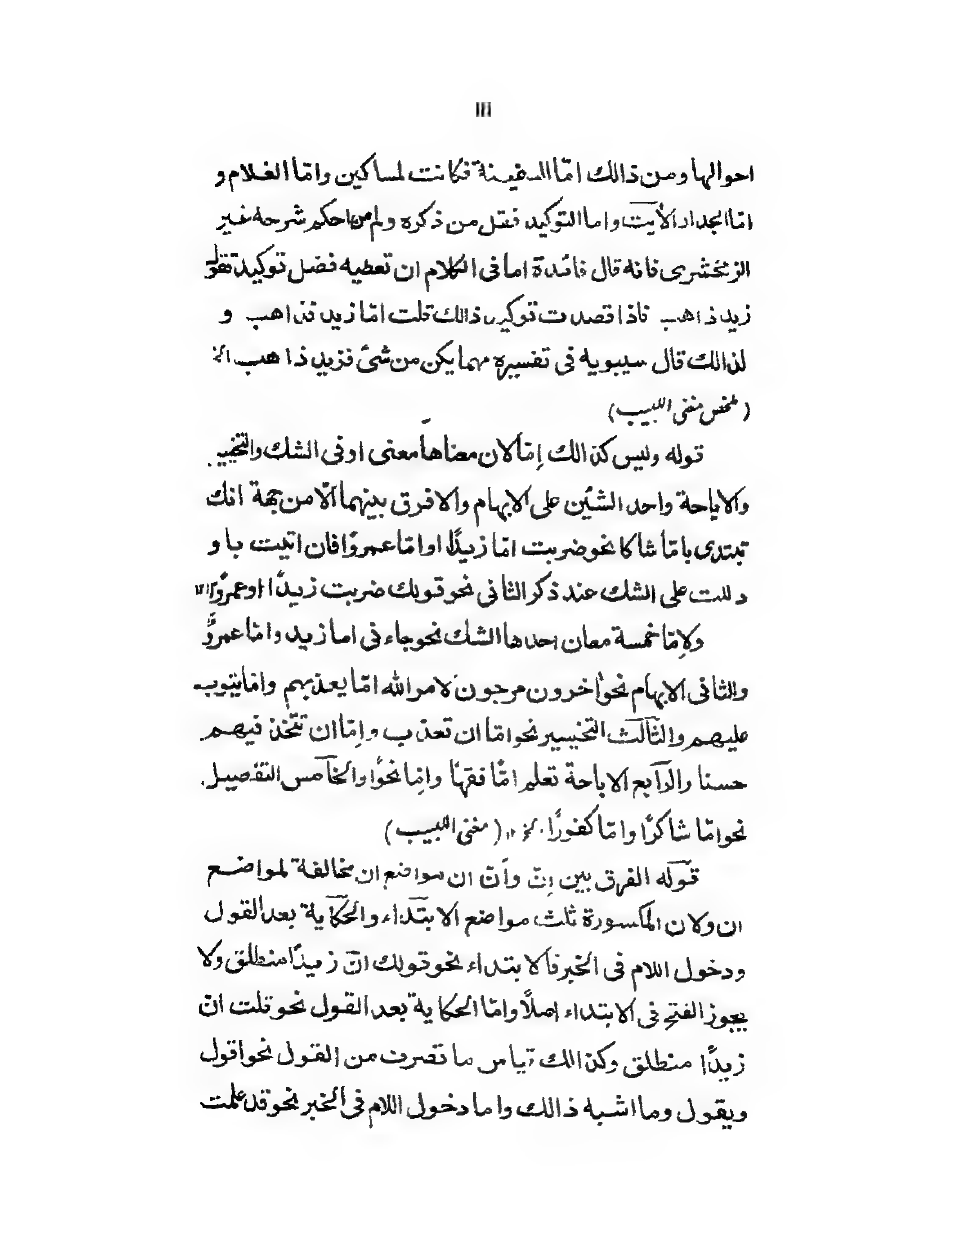 III
احوالها ومن ذالك امّا السفينة فكانت لمساكين وامّا الغلام و
امّا الجدار الأيت واما التوكيد فقل من ذكره ولم من احكم شرحه غير
الزمخشرى فانه قال فائدة اما فى الكلام ان تعطيه فضل توكيد تقول
زيد ذاهب فاذا قصدت توكيد ذالك قلت امّا زيد فذاهب و
لذالك قال سيبويه فى تفسيره مهما يكن من شئ فزيد ذاهب الخ
(ملخص مغنى اللبيب)
قوله وليس كذالك إمّا لان معناها معنى او فى الشك والتخيير
والاباحة واحد الشئين على الابهام والافرق بينهما الّا من جهة انك
تبتدى بامّا شاكا نحو ضربت امّا زيدًا او امّا عمروًا فان اتيت با و
دللت على الشك عند ذكر الثانى نحو قولك ضربت زيدًا او عمروًا ١٢
ولإمّا خمسة معان احدها الشك نحو جاء فى اما زيد وامّا عمروٌ
والثانى الابهام نحو اخرون مرجون لامر الله امّا يعذبهم وامّا يتوب
عليهم والثالث التخيير نحو امّا ان تعذب وإمّا ان تتخذ فيهم
حسنا والرابع الاباحة تعلم امّا فقهًا وامّا نحوًا والخامس التفصيل
نحو امّا شاكرًا وامّا كفورًا الخ ١٢ (مغنى اللبيب)
قوله الفرق بين إنّ وأنّ ان مواضع ان مخالفة لمواضع
ان ولان المكسورة ثلث مواضع الابتداء والحكاية بعد القول
ودخول اللام فى الخبر فالابتداء نحو قولك انّ زيدًا منطلق ولا
يجوز الفتح فى الابتداء اصلًا وامّا الحكاية بعد القول نحو قلت انّ
زيدًا منطلق وكذالك قياس ما تصرف من القول نحو اقول
ويقول وما اشبه ذالك واما دخول اللام فى الخبر نحو قد علمت